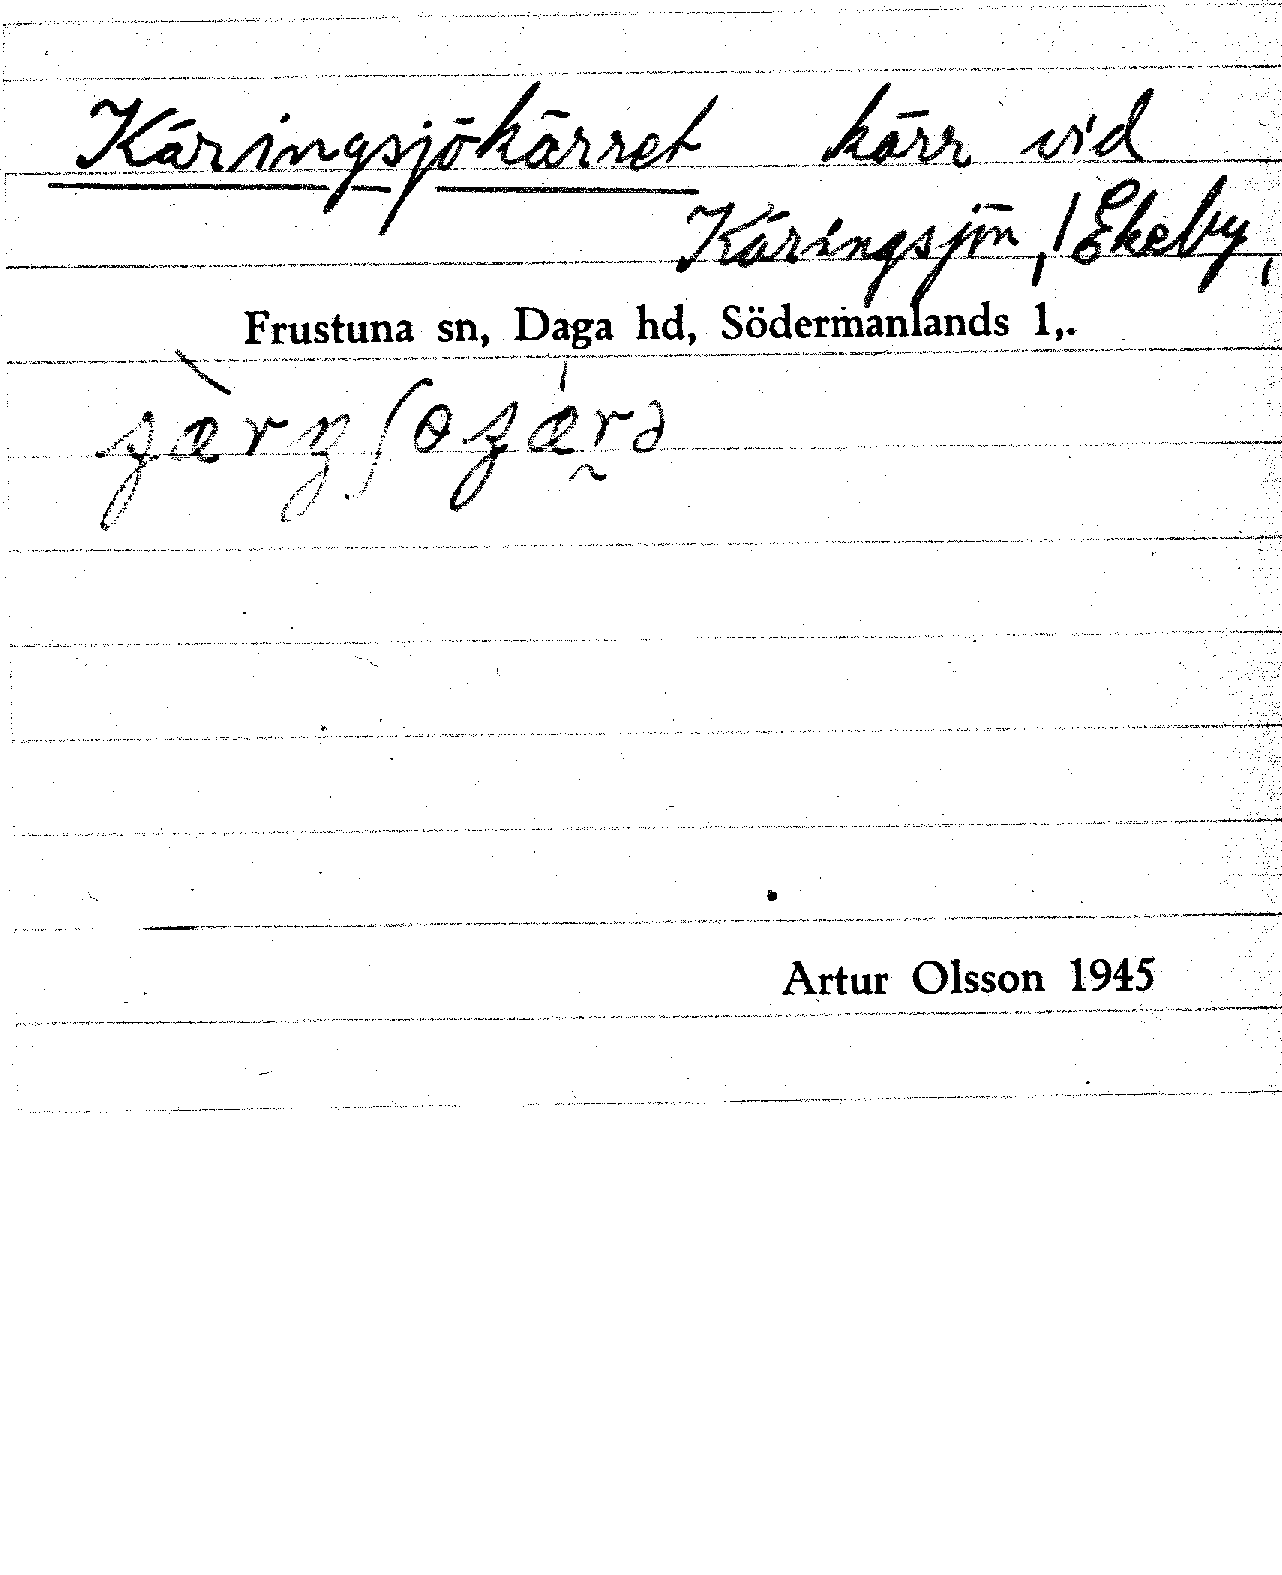 Käringsjökärret kärr vid
Käringsjön, / Ekeby,
Frustuna sn, Daga hd, Södermanlands l,.
Artur Olsson 1945